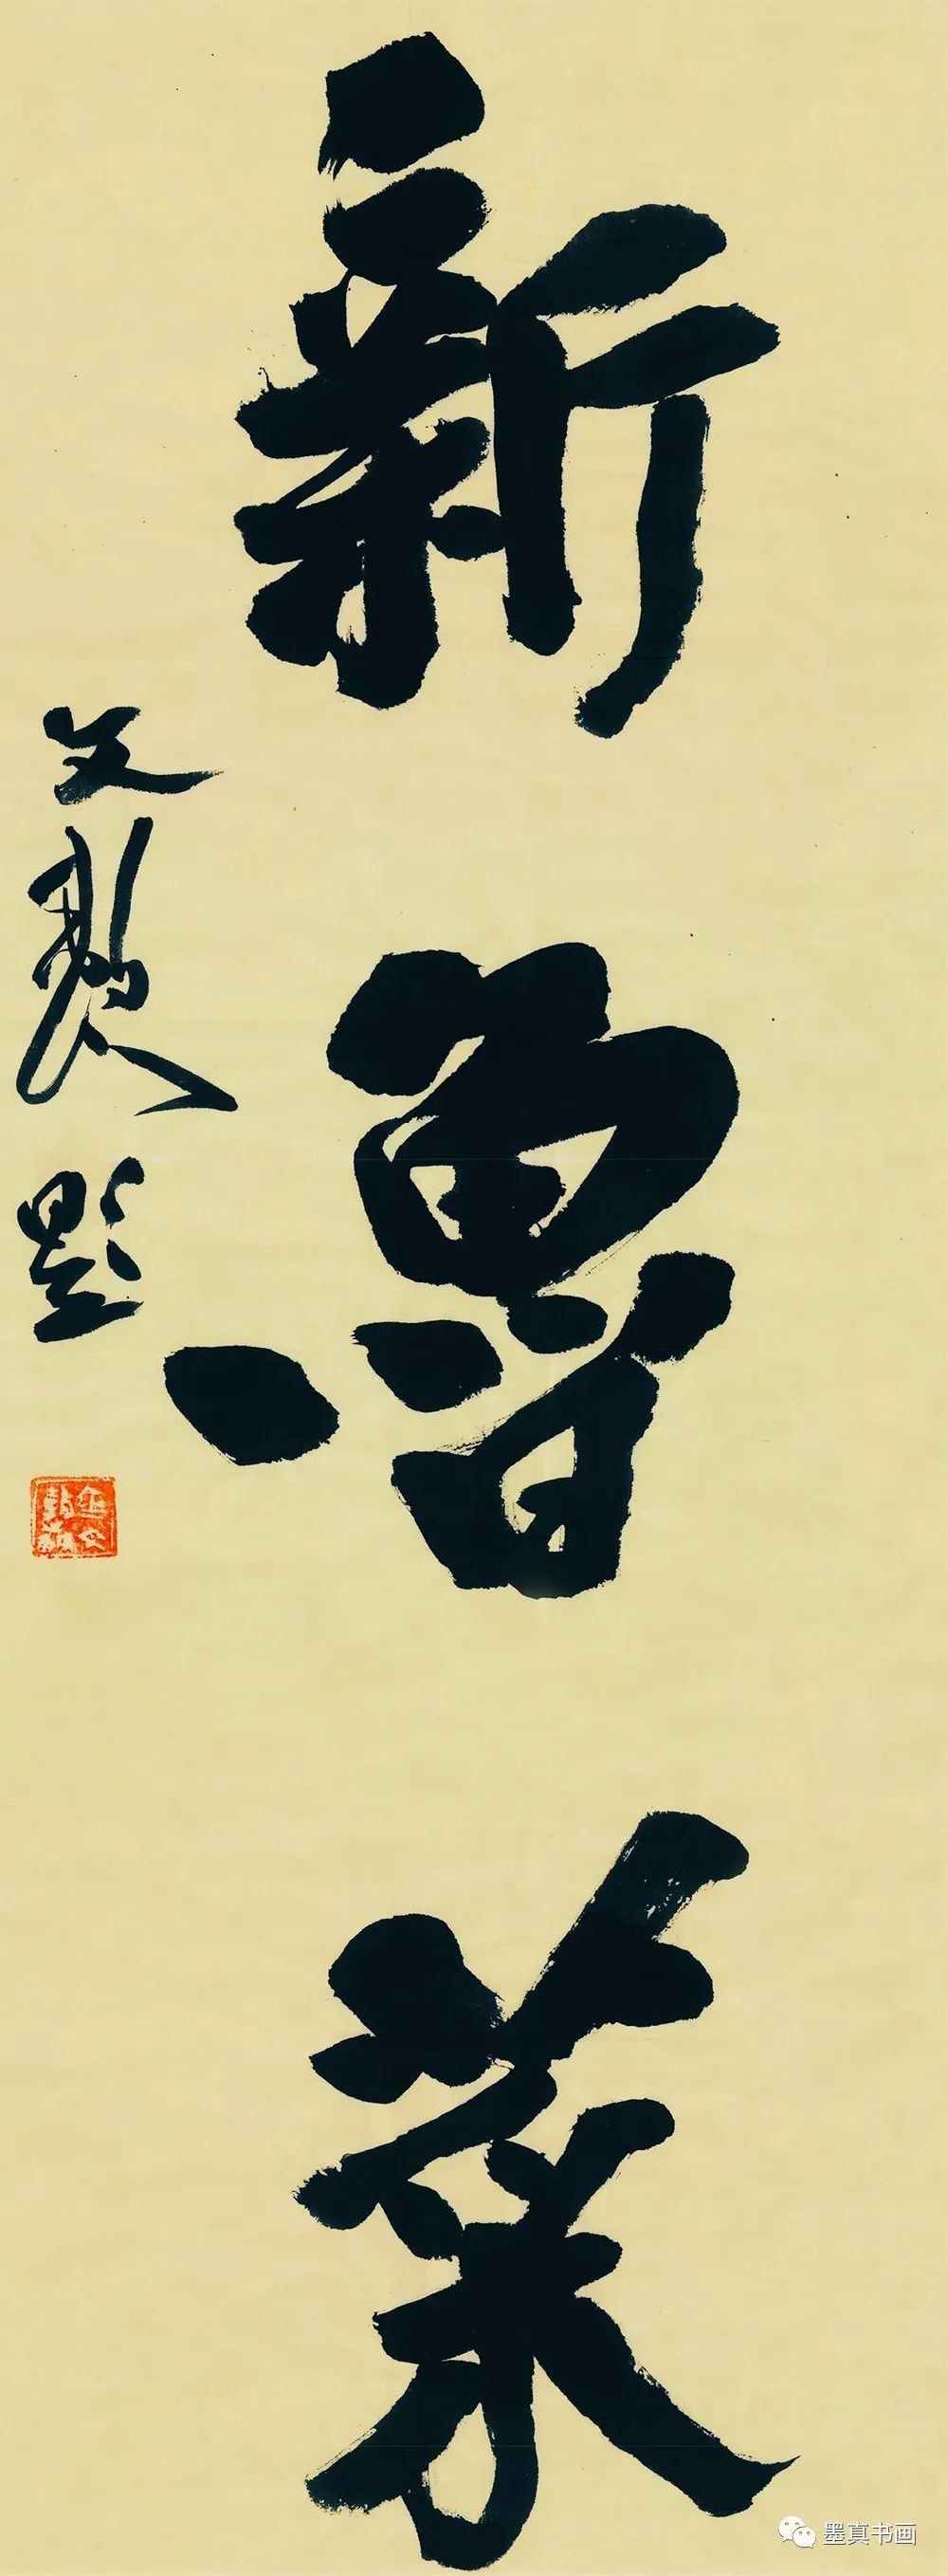 新魯菜
文獻題
墨真书画